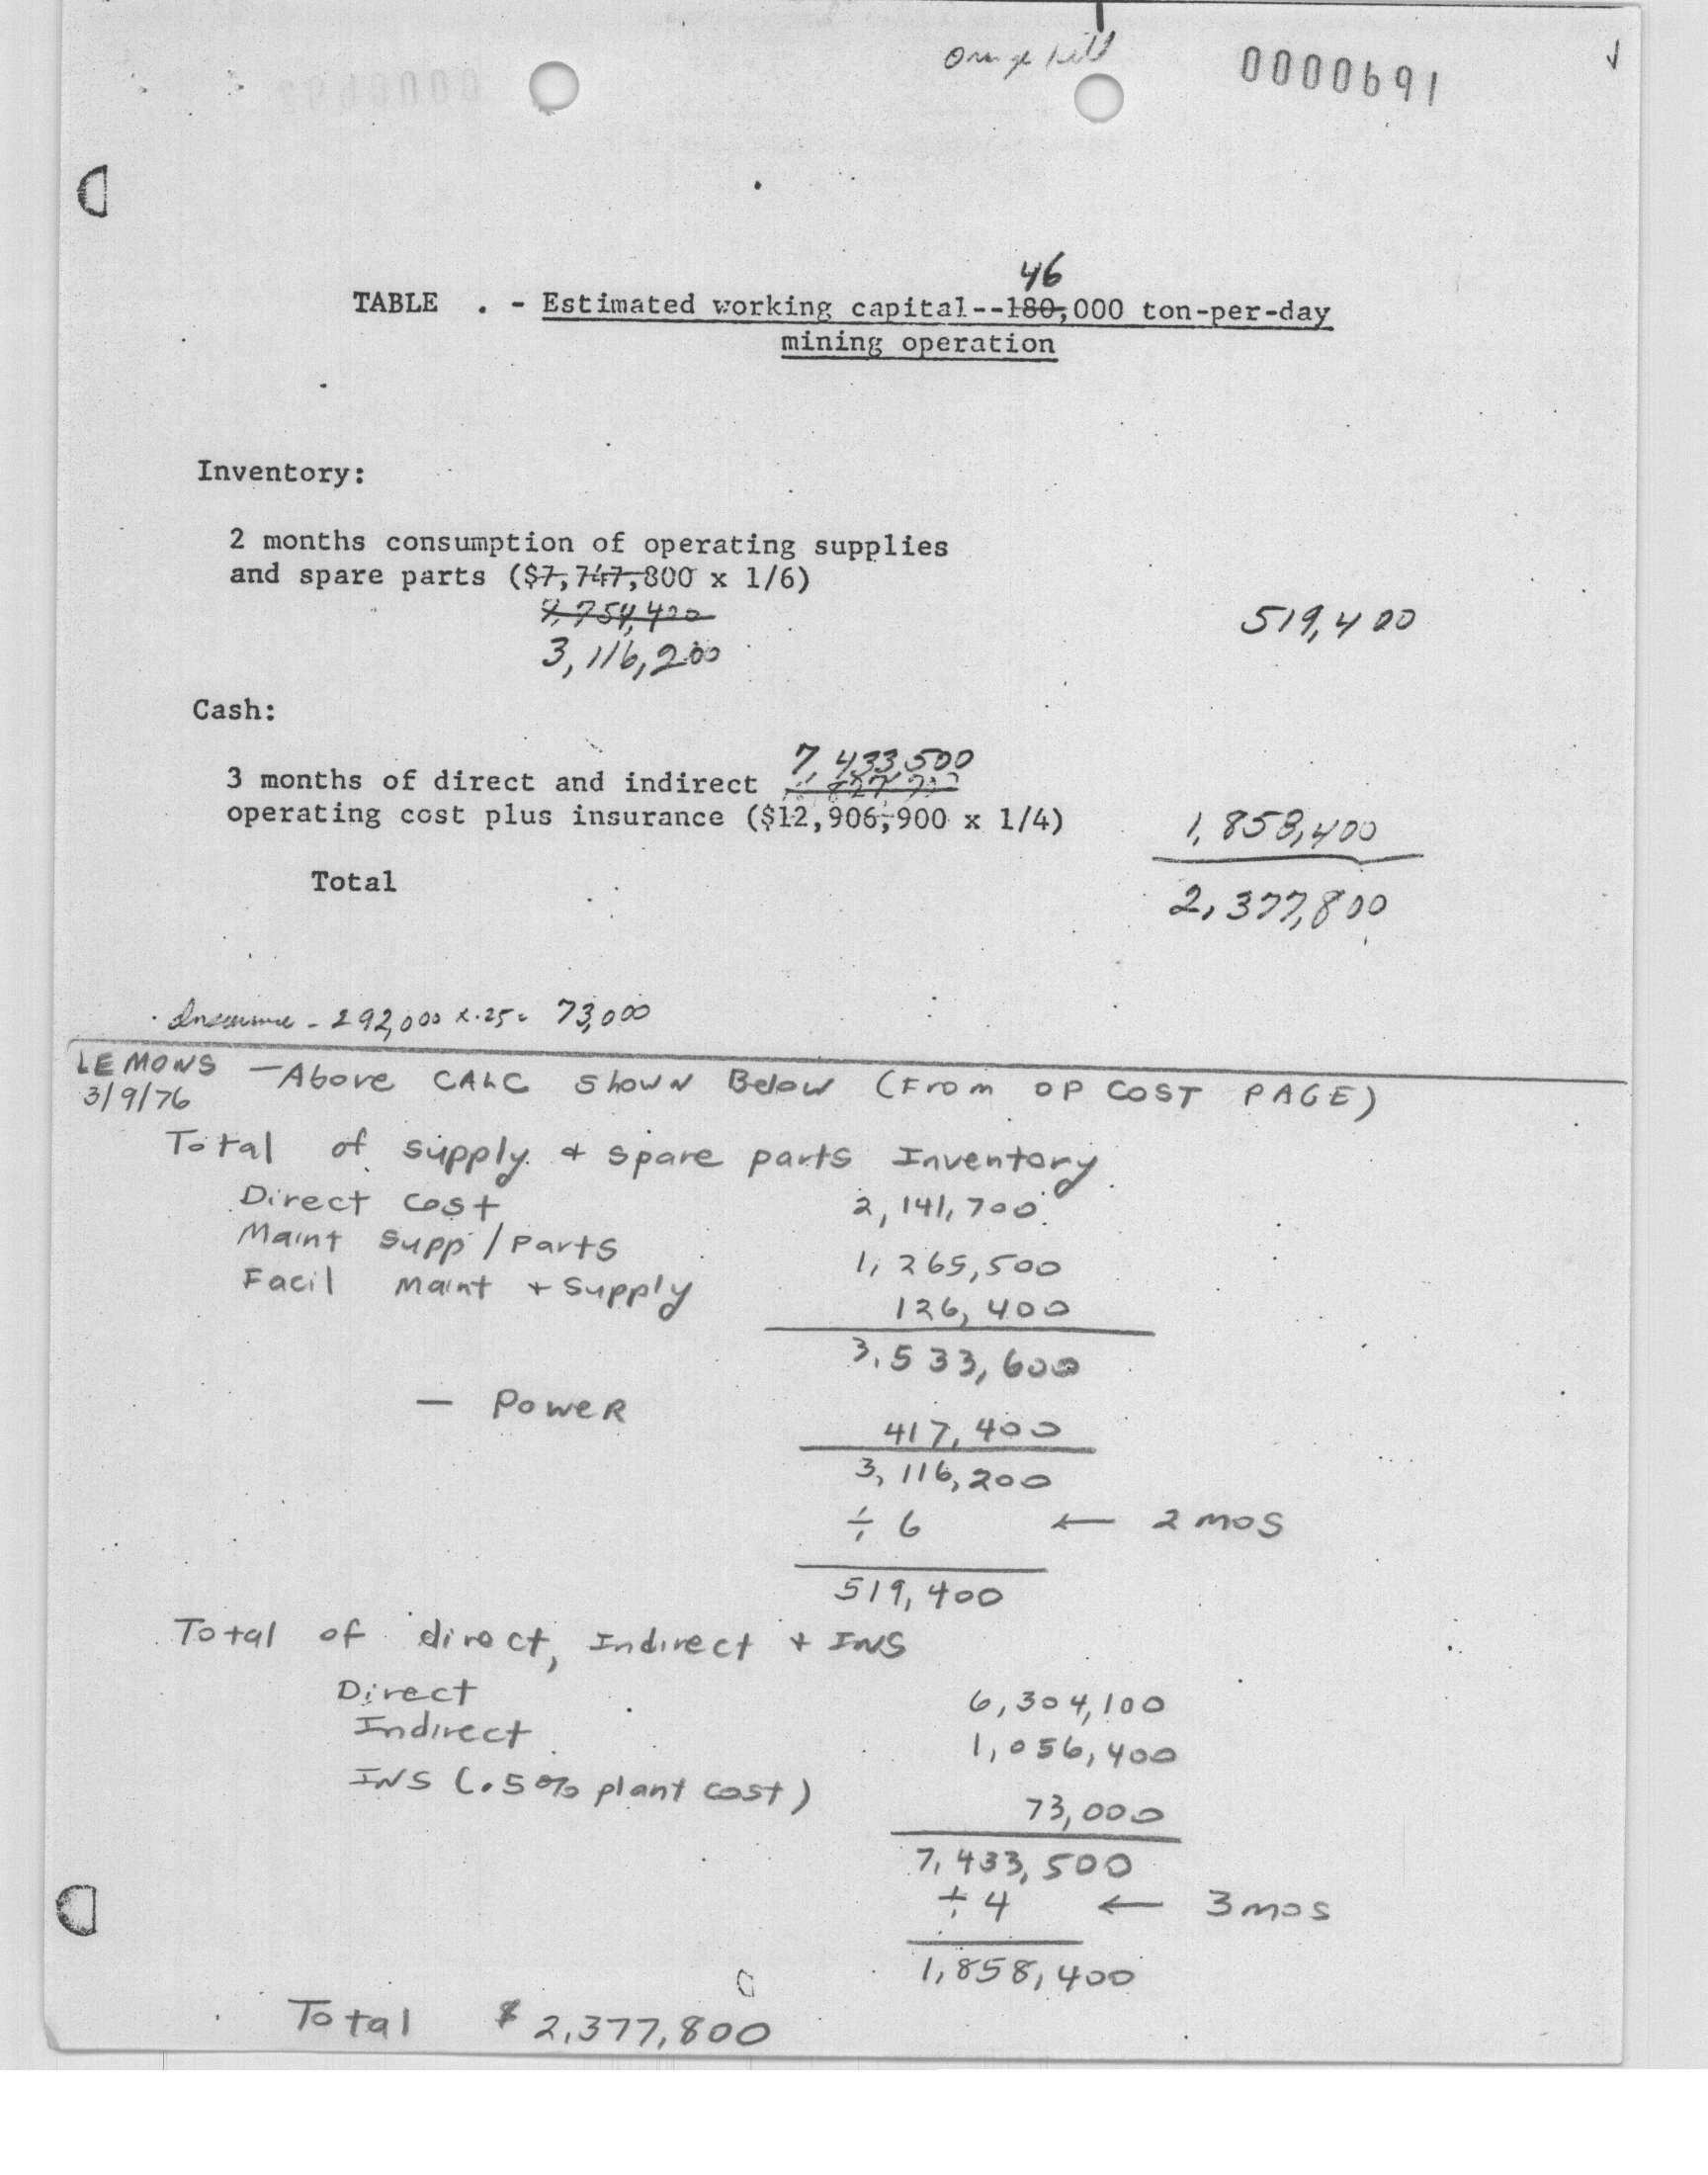 Orange hill
0000691
46
TABLE . - Estimated working capital--180,000 ton-per-day
mining operation
Inventory:
2 months consumption of operating supplies
and spare parts ($7,747,800 x 1/6)
3,116,200
519,400
Cash:
7,433,500
3 months of direct and indirect
operating cost plus insurance ($12,906,900 x 1/4)
1,858,400
Total
2,377,800
Insurance - 292,000 x .25 = 73,000
LEMONS — Above CALC shown Below (From OP COST PAGE)
3/9/76
Total of supply & spare parts Inventory
Direct Cost 2,141,700
Maint Supp / Parts 1,265,500
Facil Maint + Supply 126,400
3,533,600
— Power 417,400
3,116,200
÷ 6 ← 2 mos
519,400
Total of direct, Indirect + INS
Direct 6,304,100
Indirect 1,056,400
INS (.5% plant cost) 73,000
7,433,500
÷ 4 ← 3 mos
1,858,400
Total $ 2,377,800